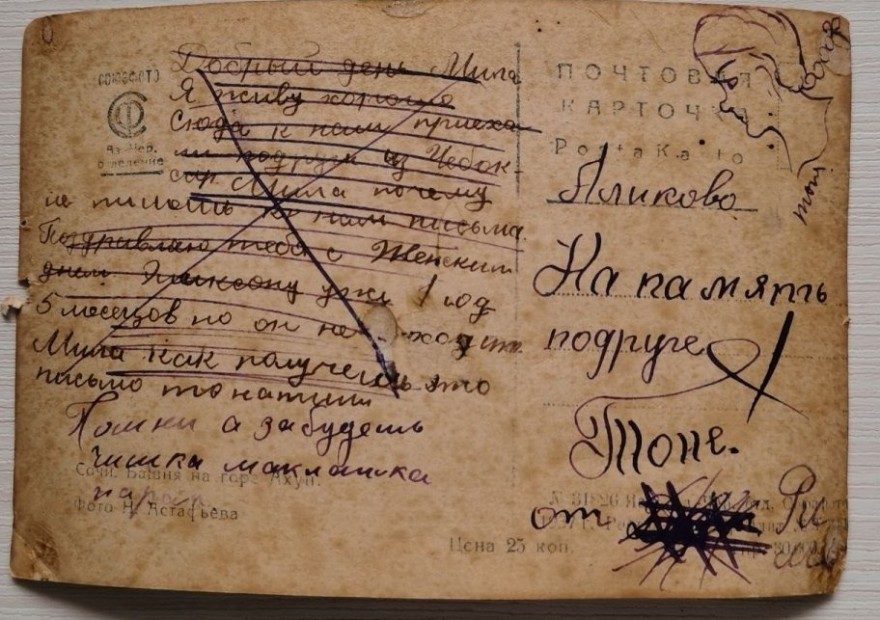 Добрый день Мила
Я живу хорошо
Сюда к нам приеха-
ли подруги из Чебок-
сар Мила почему
не пишешь к нам письма.
Поздравляю тебя с Женским
днем уже 1 год
5 месецов но он не ходит
Мила как получешь это
письмо то напиши
Помни а забудешь
чишка
Сочи. Башня на горе Ахун.
Фото Н. Астафьева
СОЮЗФОТО
Отделение
ПОЧТОВАЯ
КАРТОЧКА
Аликово
На память
подруге
Тоне.
от
Цена 25 коп.